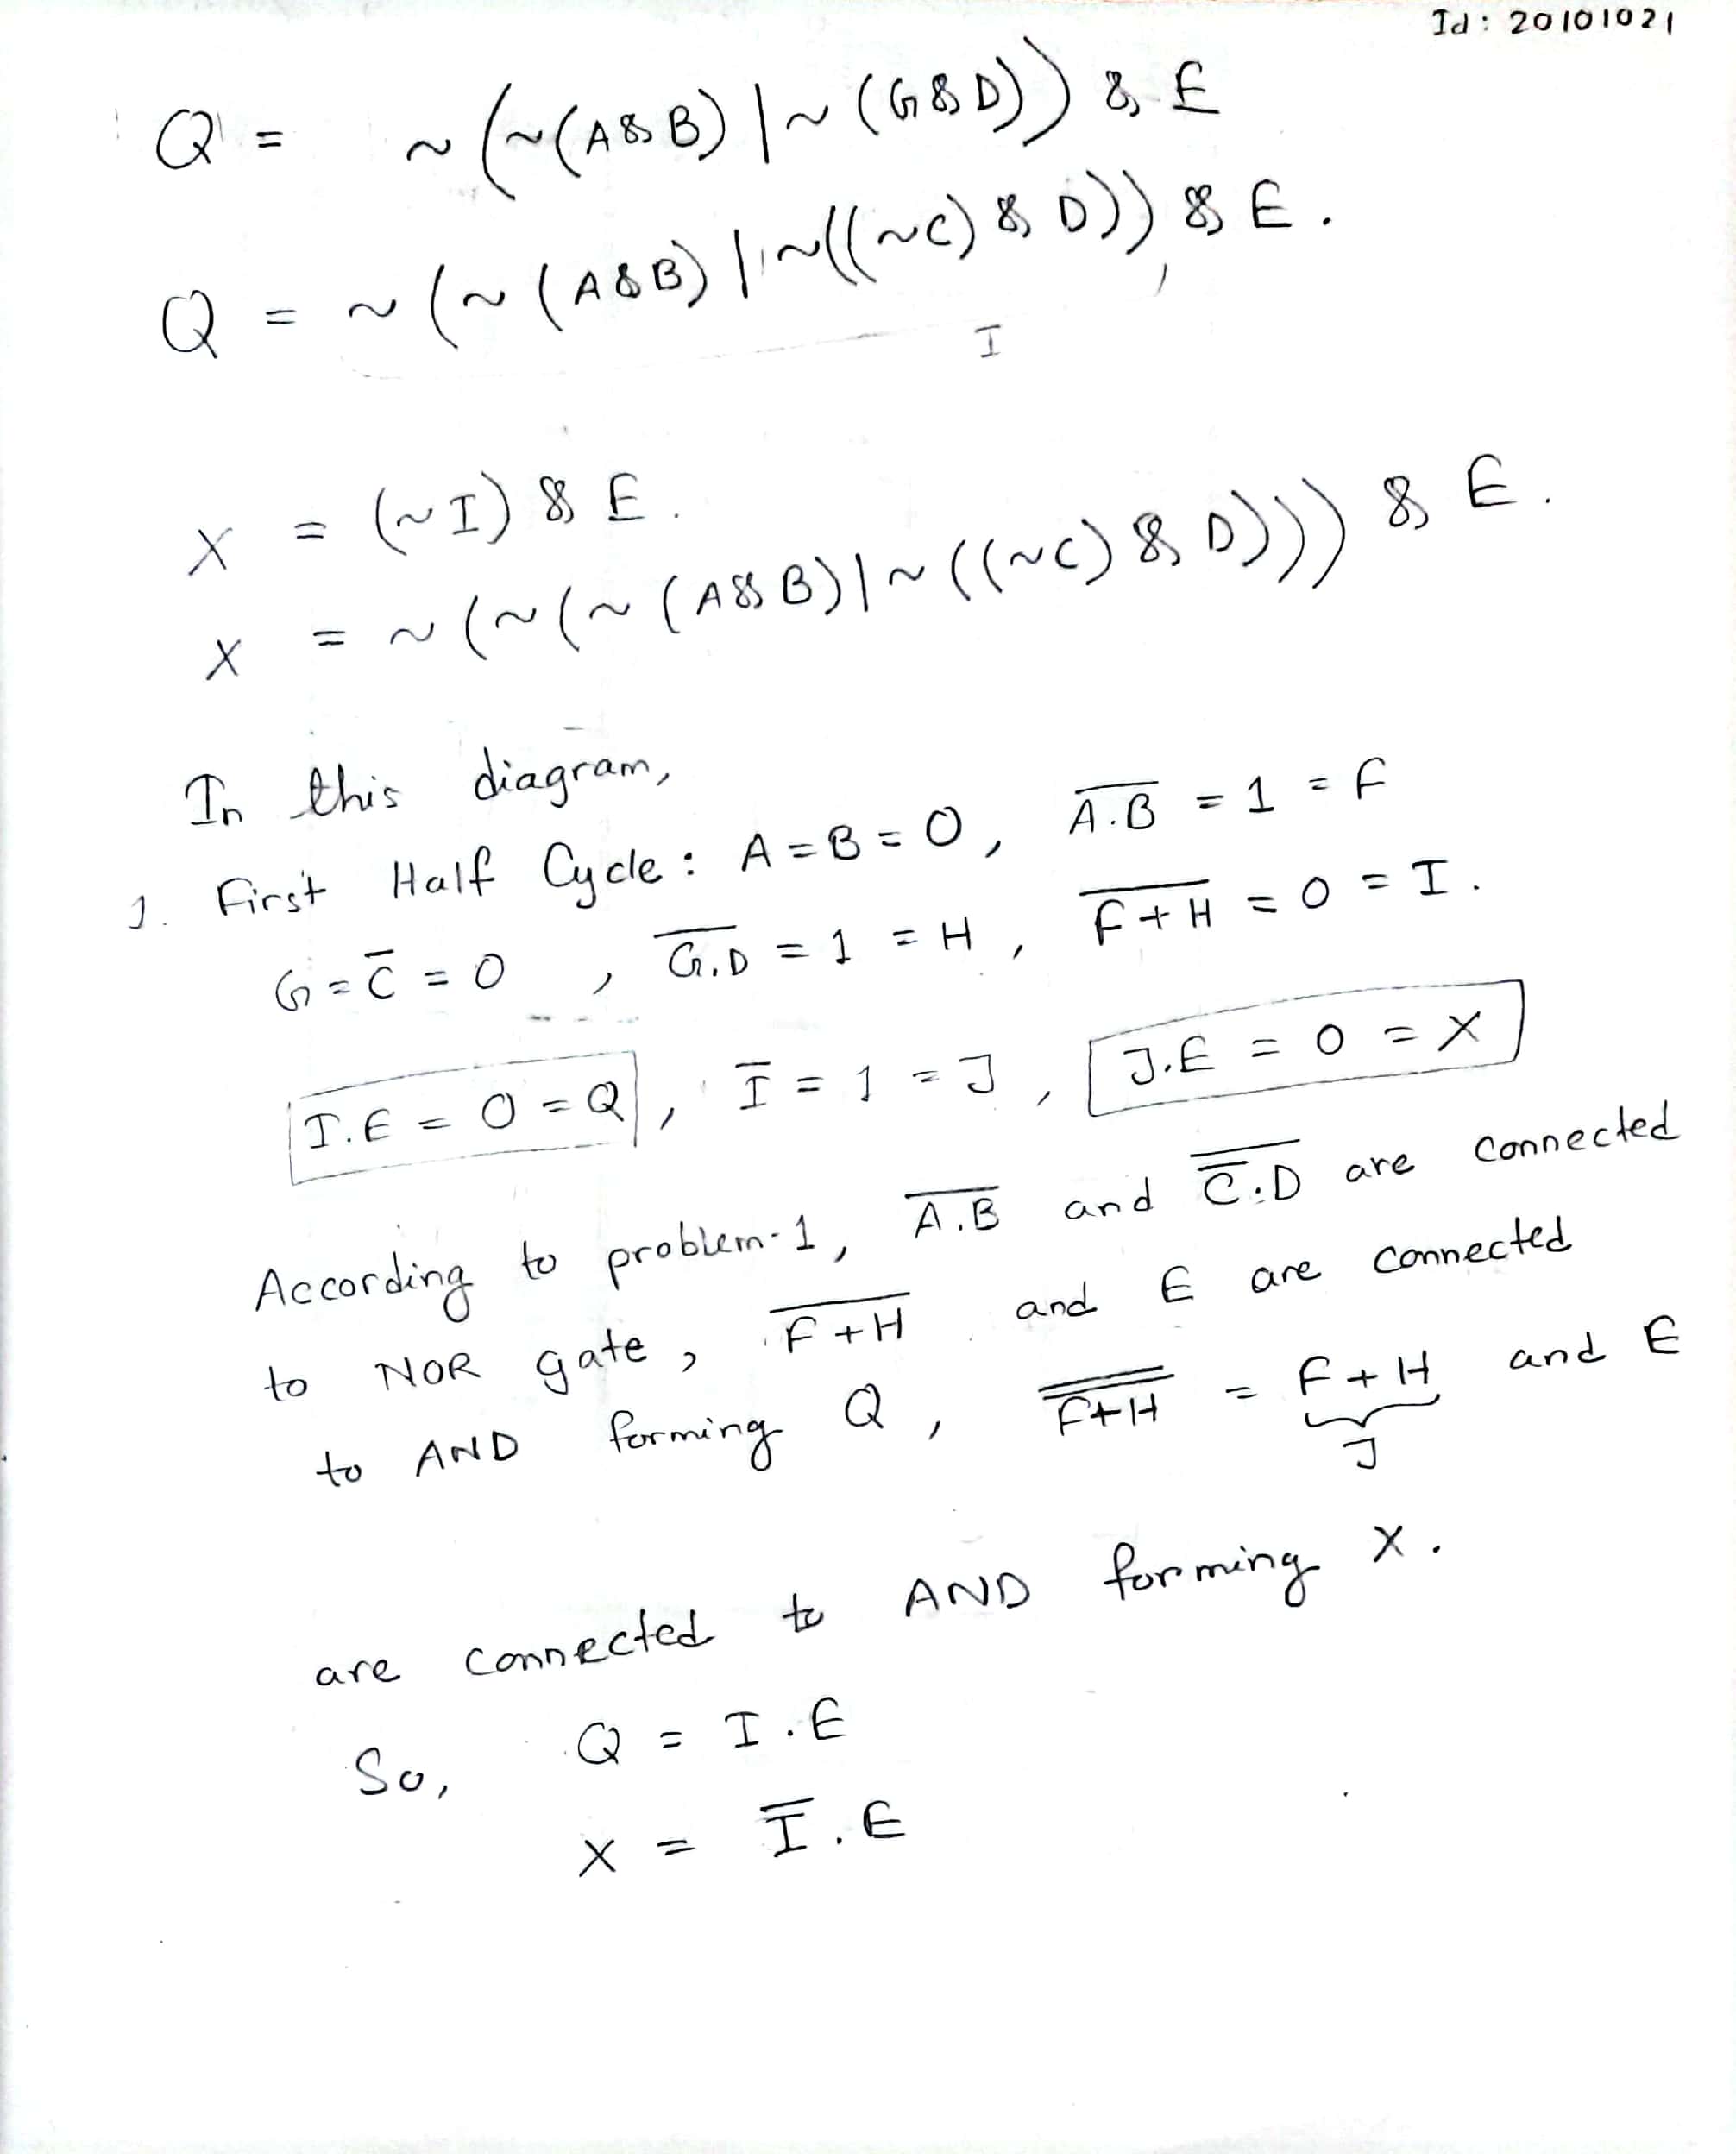 Id: 20101021
Q = ~(~(A&B)|~(G&D)) & E
Q = ~(~(A&B)|~((~C)&D)) & E.
I
X = (~I) & E.
X = ~(~(~(A&B)|~((~C)&D))) & E.
In this diagram,
1. First Half Cycle: A=B=0, \overline{A.B} = 1 = F
G = \overline{C} = 0 , \overline{G.D} = 1 = H , \overline{F+H} = 0 = I.
I.E = 0 = Q , \overline{I} = 1 = J , J.E = 0 = X
According to problem-1, \overline{A.B} and \overline{\overline{C}.D} are connected
to NOR gate, \overline{F+H} and E are connected
to AND forming Q , \overline{\overline{F+H}} = F+H and E
J
are connected to AND forming X.
So, Q = I.E
X = \overline{I}.E